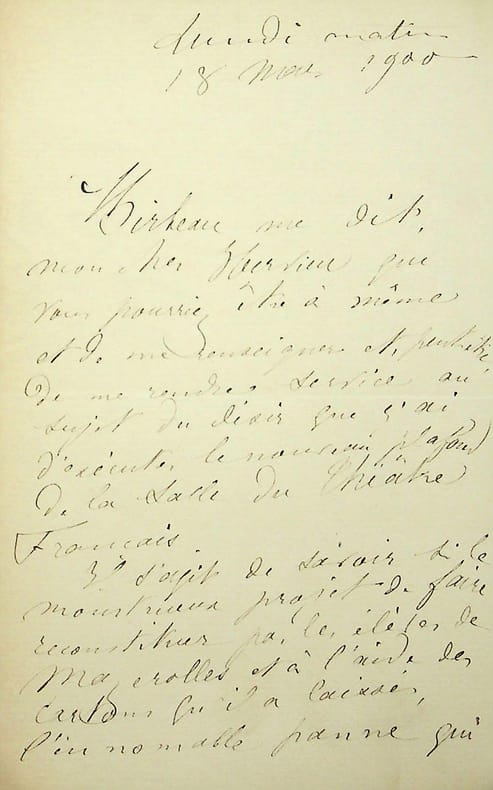 Lundi matin
18 Mars 1900
Mirbeau me dit,
mon cher Hervieu que
vous pourriez être à même
et de me renseigner et, peut être
de me rendre service au
sujet du désir que j'ai
d'exécuter le nouveau plafond
de la salle du Théâtre
Français.
Il s'agit de savoir si le
monstrueux projet de faire
reconstituer par les élèves de
Mazerolles et à l'aide des
cartons qu'il a laissés,
l'innomable panne qui